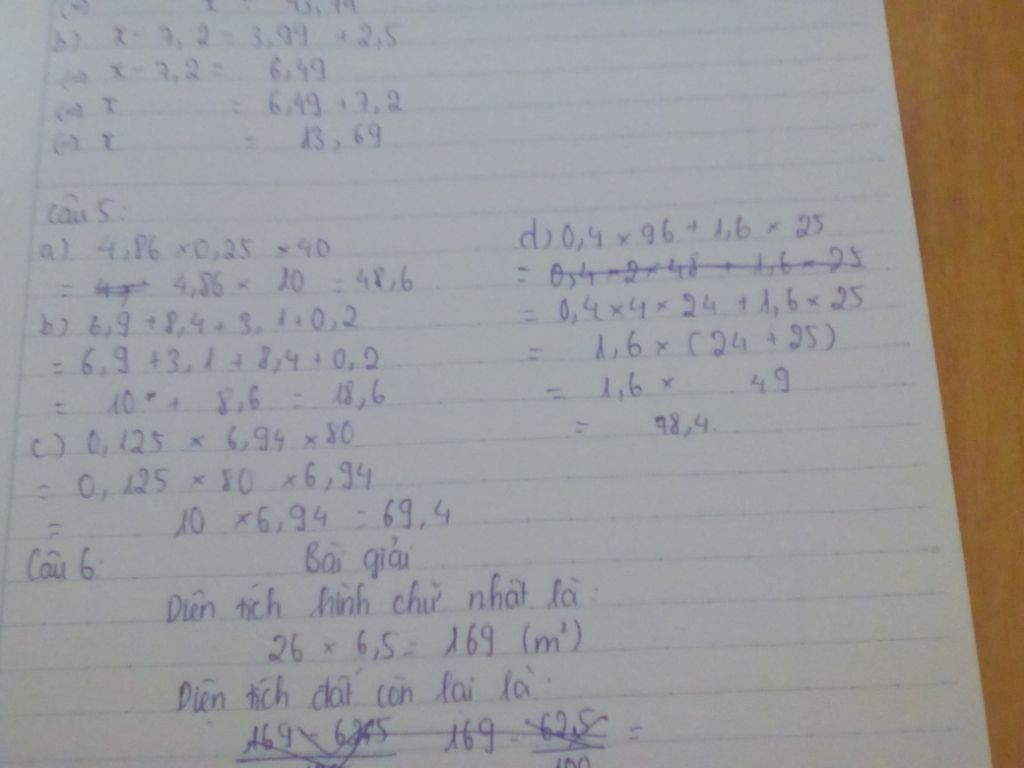 (=) x = 13,79
b) x - 7,2 = 3,99 + 2,5
(=) x - 7,2 = 6,49
(=) x = 6,49 + 7,2
(=) x = 13,69
Câu 5:
a) 4,86 × 0,25 × 40
= 4,86 × 10 = 48,6
b) 6,9 + 8,4 + 3,1 + 0,2
= 6,9 + 3,1 + 8,4 + 0,2
= 10 + 8,6 = 18,6
c) 0,125 × 6,94 × 80
= 0,125 × 80 × 6,94
= 10 × 6,94 = 69,4
d) 0,4 × 96 + 1,6 × 25
= 0,4 × 2 × 48 + 1,6 × 25
= 0,4 × 4 × 24 + 1,6 × 25
= 1,6 × (24 + 25)
= 1,6 × 49
= 98,4
Câu 6: Bài giải
Diện tích hình chữ nhật là:
26 × 6,5 = 169 (m²)
Diện tích đất còn lại là:
169 - 62,5 169 - 62,5 =
100